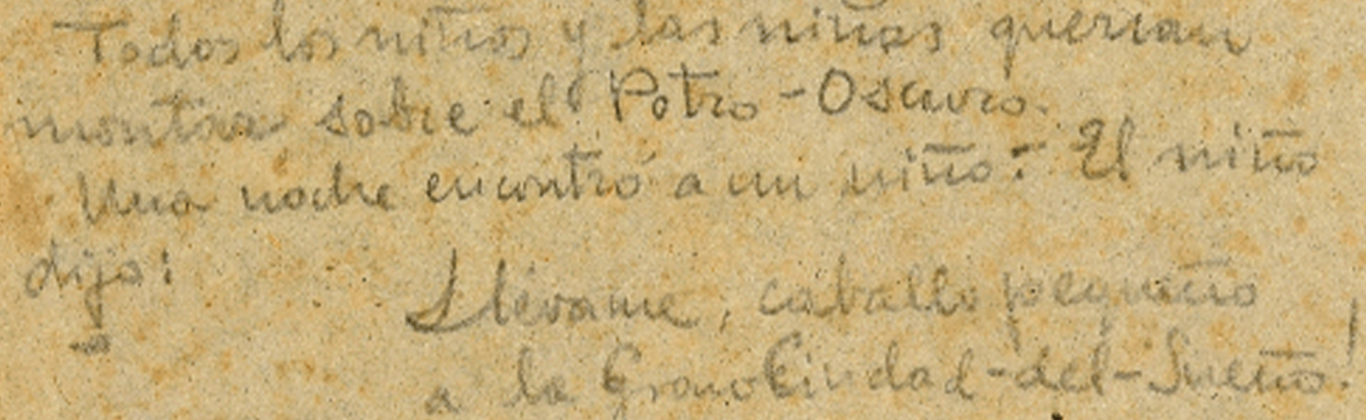 Todos los niños y las niñas querian
montar sobre el Potro-Oscuro.
Una noche encontró a un niño. El niño
dijo:
Llévame, caballo pequeño
a la Gran Ciudad-del-Sueño!